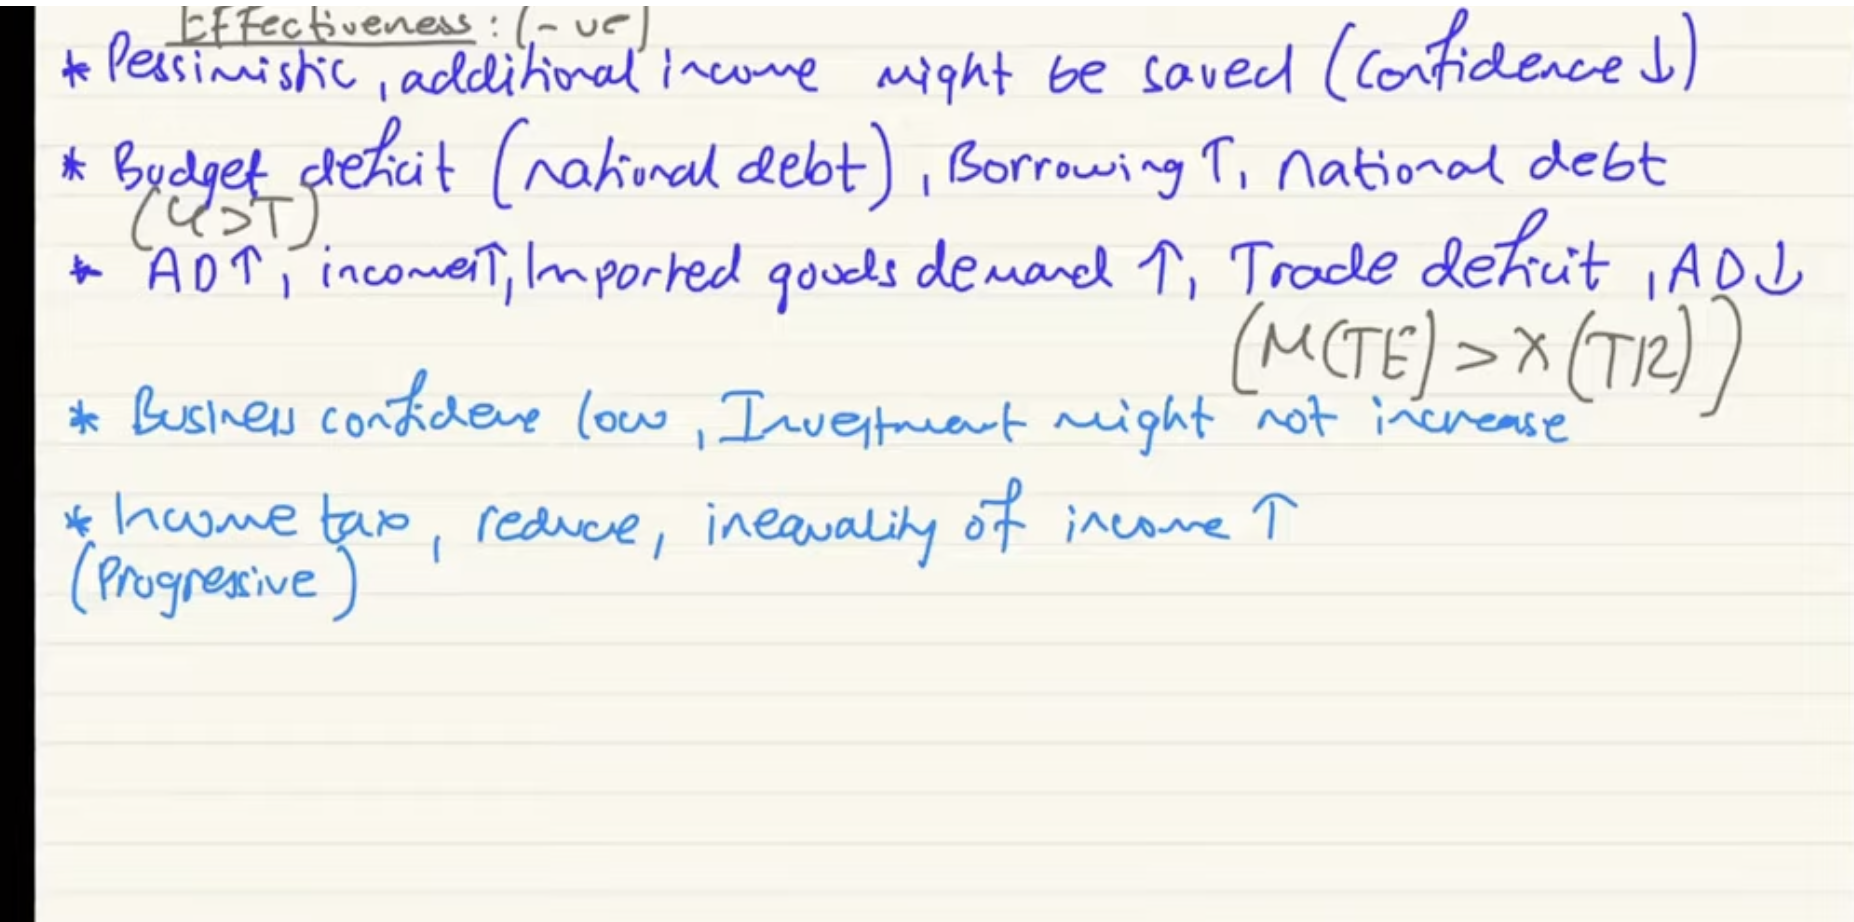 Effectiveness: (-ve)
* Pessimistic, additional income might be saved (Confidence ↓)
* Budget deficit (national debt), Borrowing ↑, national debt
(G>T)
* AD↑, income↑, Imported goods demand ↑, Trade deficit, AD↓
(M(TE) > X(TR))
* Business confidene low, Investment might not increase
* Income tax, reduce, inequality of income ↑
(Progressive)